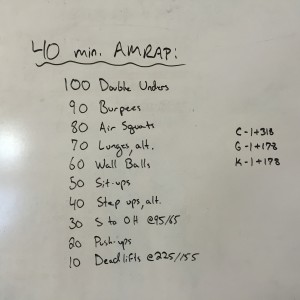 40 min. AMRAP:
100 Double Unders
90 Burpees
80 Air Squats
70 Lunges, alt.
60 Wall Balls
50 Sit-ups
40 Step ups, alt.
30 S to OH @95/65
20 Push-ups
10 Deadlifts @225/155
C-1+318
G-1+178
K-1+178